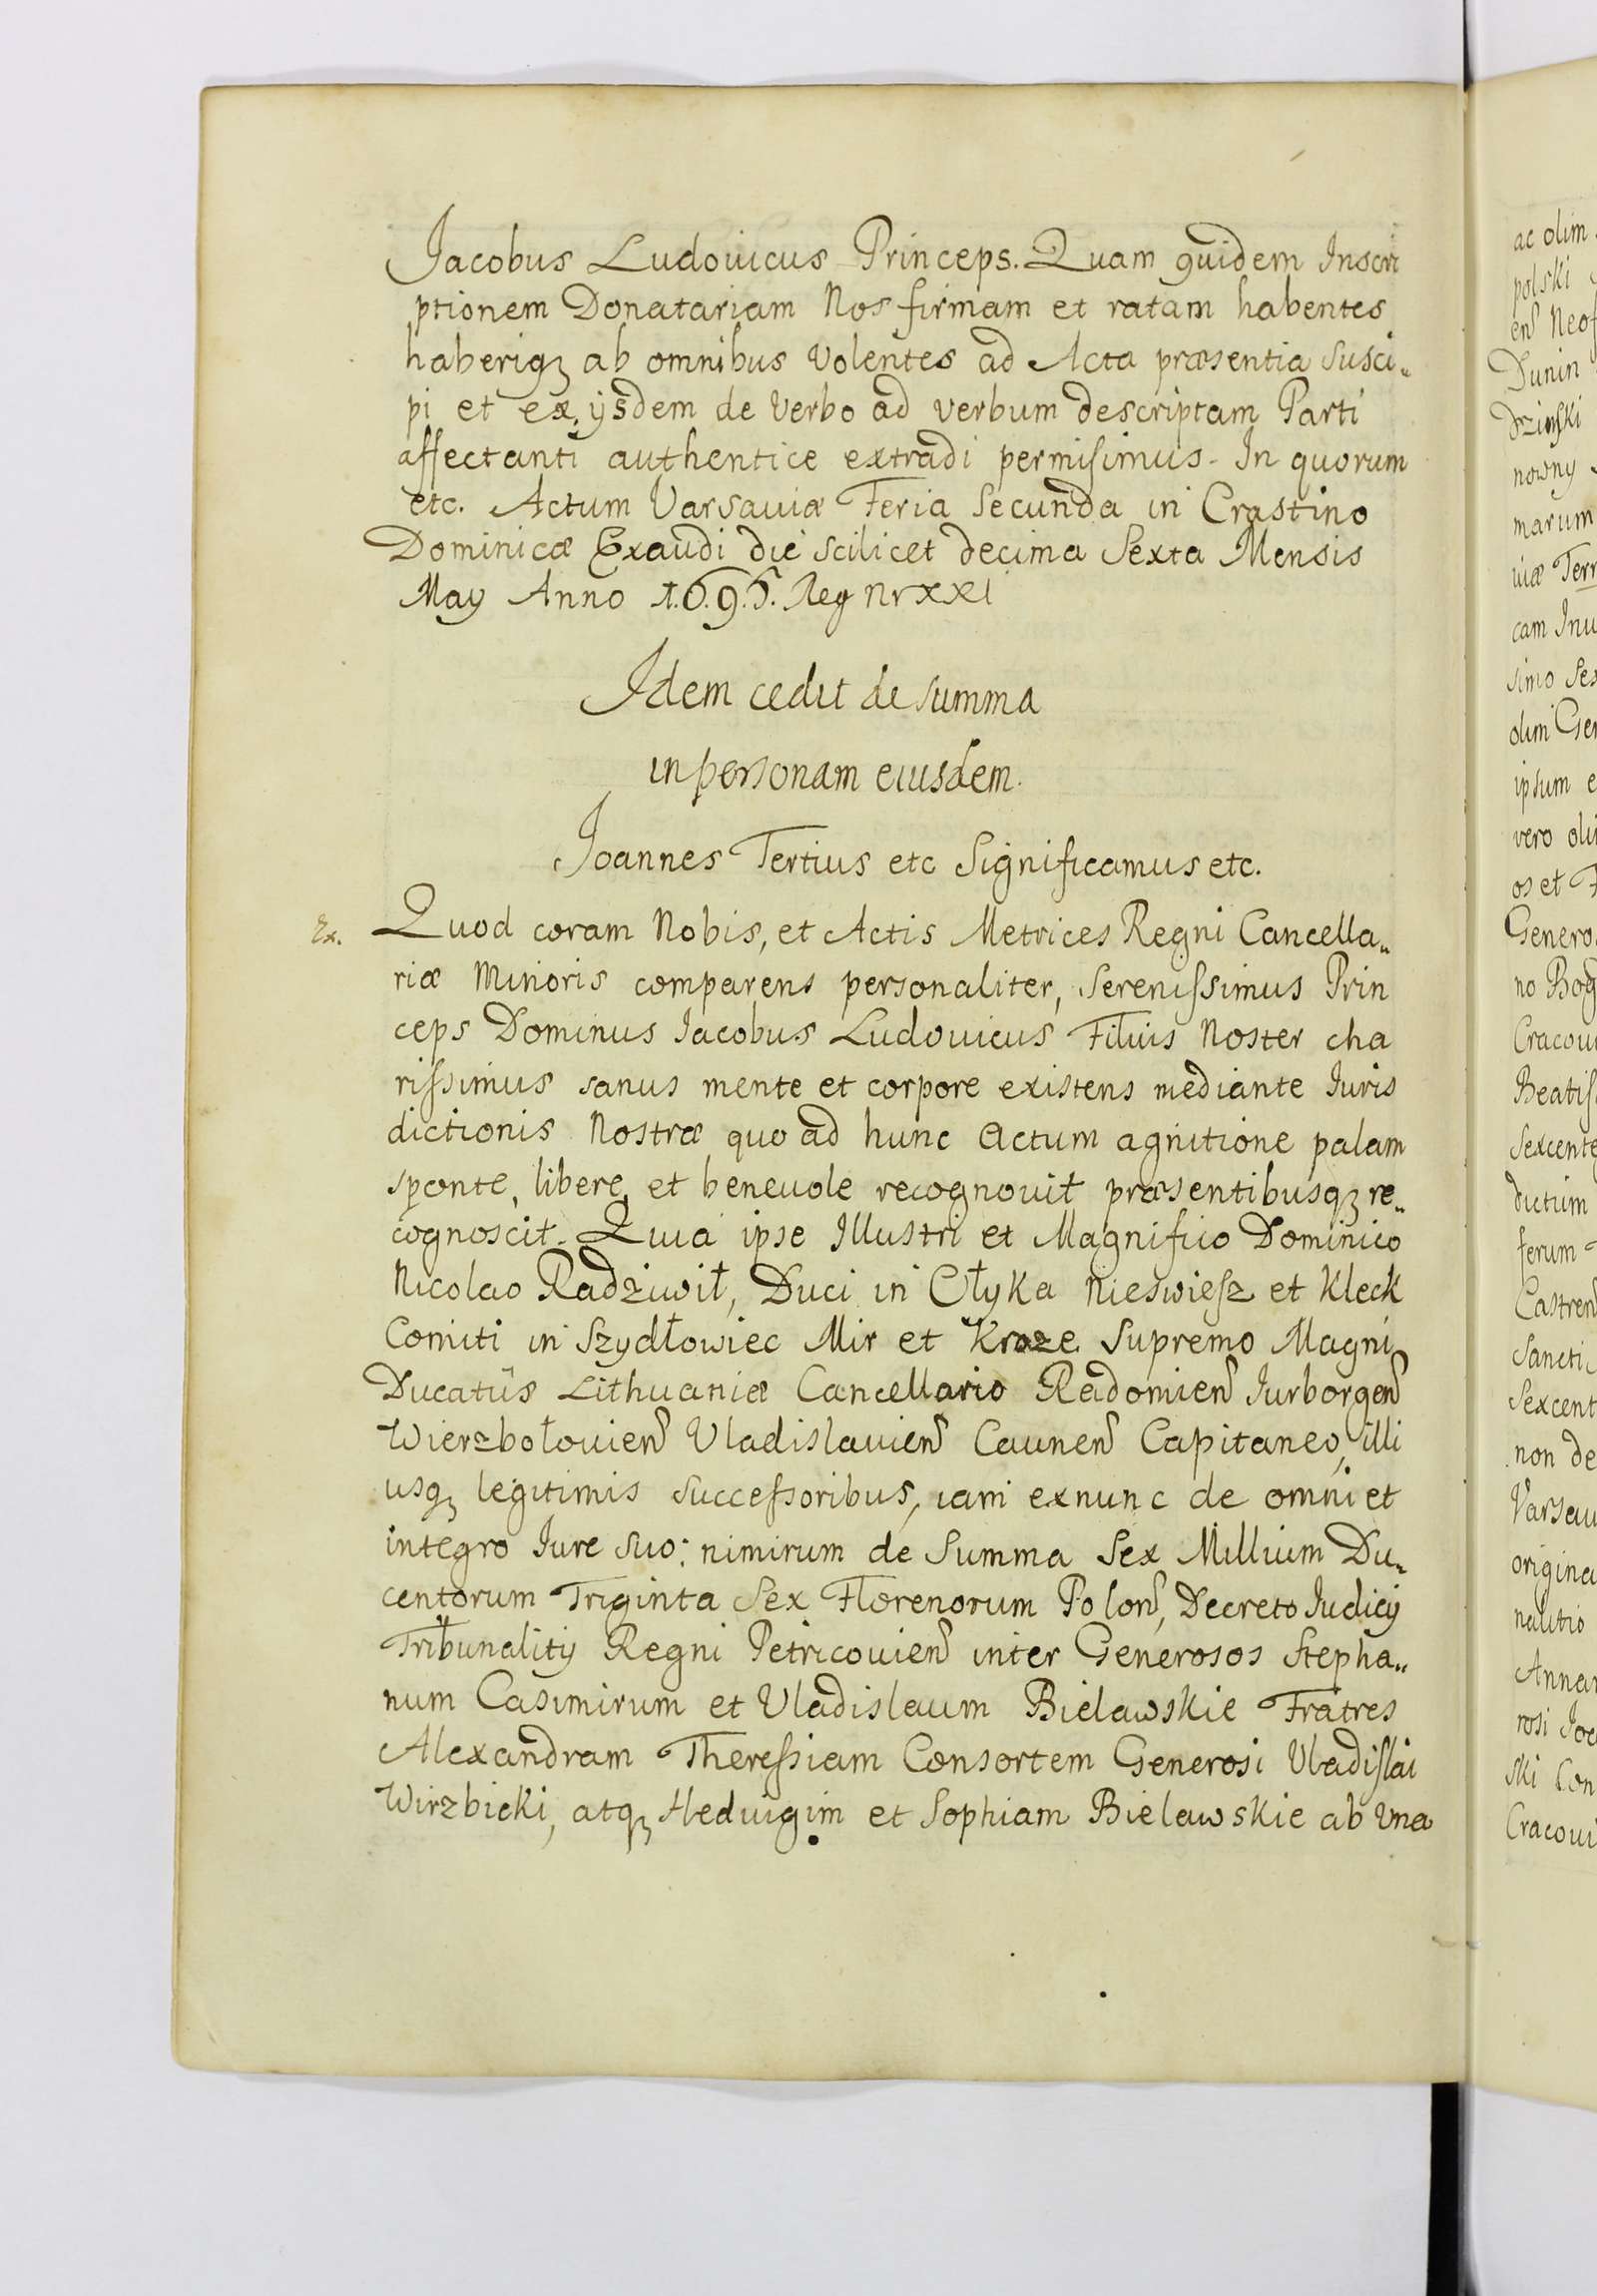 Jacobus Ludouicus Princeps. Quam quidem Inscri
ptionem Donatariam Nos firmam et ratam habentes
haberiqꝫ ab omnibus Volentes ad Acta præsentia Susci„
pi et ex ijsdem de Verbo ad verbum descriptam Parti
affectanti authentice extradi permisimus. In quorum
etc. Actum Varsauiæ Feria Secunda in Crastino
Dominicæ Exaudi die scilicet decima Sexta Mensis
May Anno
Idem cedit de summa
in personam eiusdem.
Joannes Tertius etc Significamus etc.
Ex. Quod coram Nobis, et Actis Metrices Regni Cancella„
riæ Minoris comparens personaliter, Serenissimus Prin
ceps Dominus Jacobus Ludouicus Filius Noster cha
rissimus sanus mente et corpore existens mediante Iuris
dictionis Nostræ quo ad hunc Actum agnitione palam
sponte, libere, et beneuole recognouit præsentibusqꝫ re„
cognoscit. Quia ipse Illustri et Magnifico Dominico
Nicolao Radziwił, Duci in Ołyka Nieswiesz et Kleck
Comiti in Szydłowiec Mir et Kroze Supremo Magni
Ducatûs Lithuaniæ Cancellario Radomien Iurborgen
Wierzbołouien Vladislauien Caunen Capitaneo, illi
usqꝫ legitimis successoribus, iam exnunc de omni et
integro Iure suo: nimirum de Summa Sex Millium Du„
centorum Triginta Sex Florenorum Polon, Decreto Iudicij
Tribunalitij Regni Petricouien inter Generosos Stepha„
num Casimirum et Vladislaum Bielawskie Fratres
Alexandram Theressiam Consortem Generosi Vladislai
Wirzbicki, atqꝫ Heduigim et Sophiam Bielawskie ab Vna
ac olim
polski
Dunin
nowny
marum
cam
olim
ipsum
vero
os et
Genero
no Bog
Cracoui
Beatis
Sexcente
dictum
ferum
Castren
Sancti
Sexcent
non de
Varsau
origina
Anna
rosi
ski Con
Cracoui